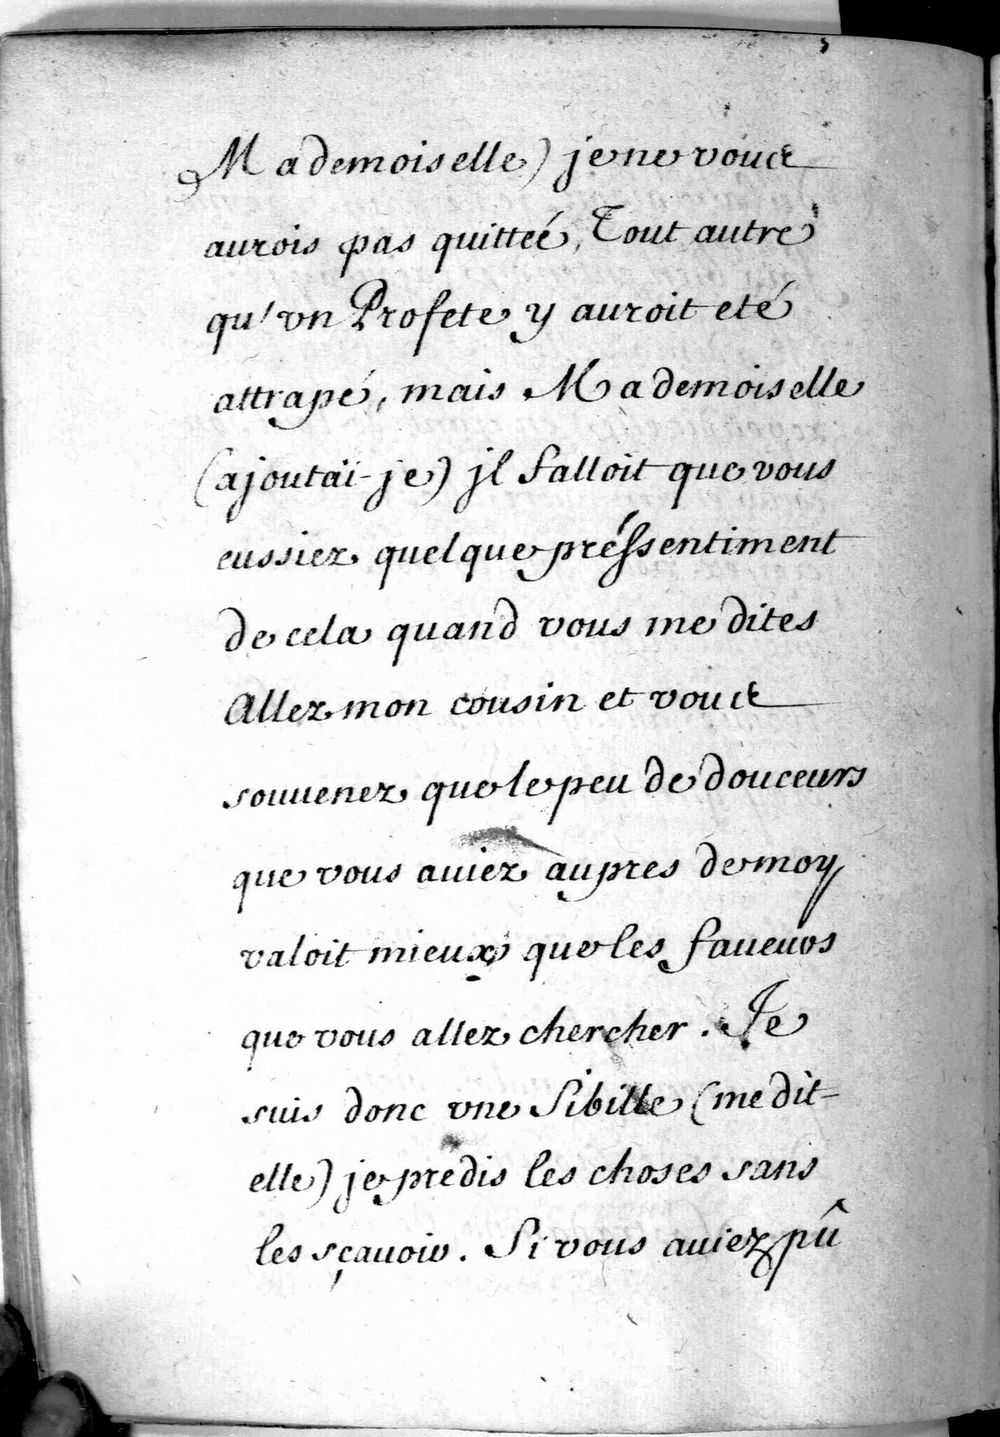 Mademoiselle) je ne vous
aurois pas quitteé, Tout autre
qu'vn Profete y auroit eté
attrapé, mais Mademoiselle
(ajoutai-je) jl falloit que vous
eussiez quelque préssentiment
de cela quand vous me dites
Allez mon cousin et vous
souuenez que le peu de douceurs
que vous auiez aupres de moy
valoit mieux que les faueurs
que vous allez chercher. Je
suis donc vne Sibille (me dit-
elle) je predis les choses sans
les sçauoir. Si vous auiez pû